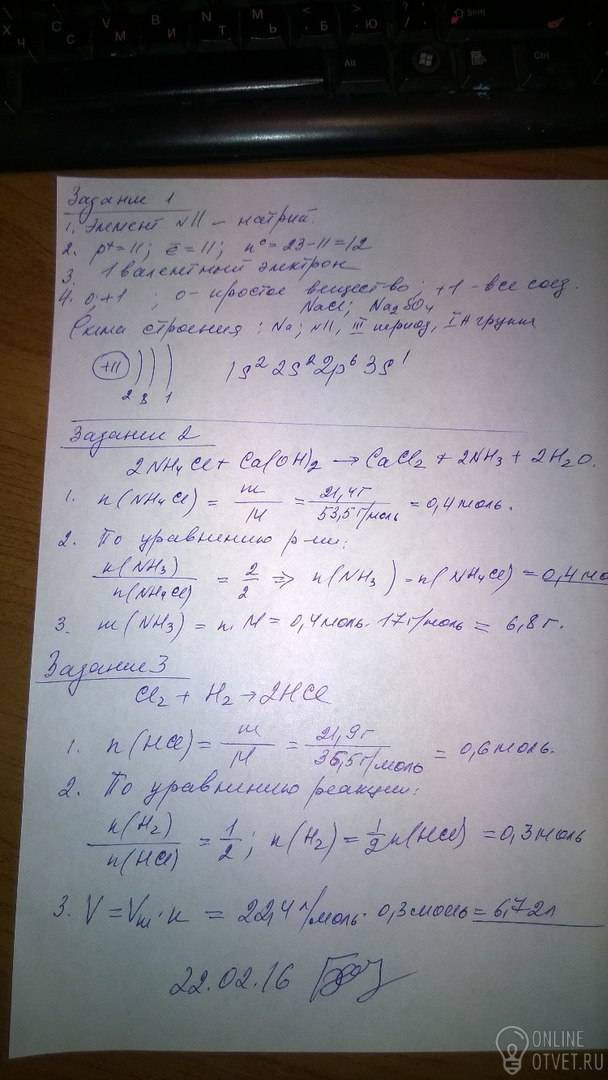 Х
Ч
С
С
V
М
В
И
N
Т
M
Ь
<
Б
>
Ю
Shift
Alt
Ctrl
Задание 1
1. Элемент №11 – натрий.
2. p⁺=11; e̅=11; n⁰=23-11=12
3. 1 валентный электрон
4. 0; +1 ; 0- простое вещество; +1 - все соед.
NaCl; Na₂SO₄
Схема строения: Na; №11, III период, IA группа
+11 ) ) ) 1s² 2s² 2p⁶ 3s¹
2 8 1
Задание 2
2NH₄Cl + Ca(OH)₂ → CaCl₂ + 2NH₃ + 2H₂O.
1. n(NH₄Cl) = m/M = 21,4г/53,5г/моль = 0,4 моль.
2. По уравнению р-ии:
n(NH₃)/n(NH₄Cl) = 2/2 => n(NH₃) = n(NH₄Cl) = 0,4 мо
3. m(NH₃) = n·M = 0,4моль · 17г/моль = 6,8 г.
Задание 3
Cl₂ + H₂ → 2HCl
1. n(HCl) = m/M = 21,9г/36,5г/моль = 0,6 моль.
2. По уравнению реакции:
n(H₂)/n(HCl) = 1/2; n(H₂) = 1/2 n(HCl) = 0,3 моль
3. V = Vm · n = 22,4 л/моль · 0,3 моль = 6,72 л
22.02.16
ONLINE
OTVET.RU